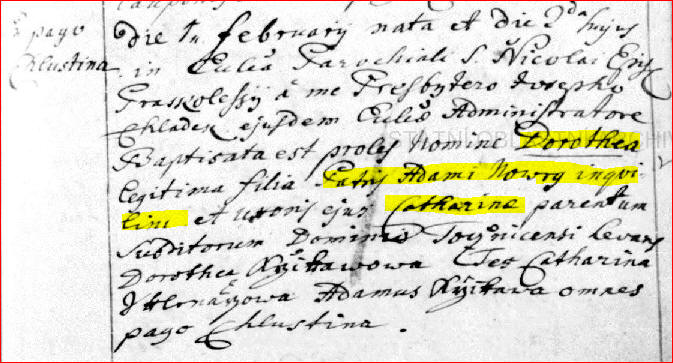 è pago
Chlustina
die 1ma february nata et die 2da hujus
in Ecclia Parochiali S. Nicolai Epis
Praskolessÿ â me Presbytero Josepho
Chladek ejusdem Ecliæ Administratore
STÁTNÍ OBLASTNÍ ARCHIV
Baptisata est proles Nomine Dorothea
legitima filia Patris Adami Nowy inqvi-
lini et uxoris ejus Catharine parentum
Subditorum Dominio Toÿnicensi Levans
Dorothea Kÿtkawowa Tes Catharina
Adamus omnes
pago Chlustina.